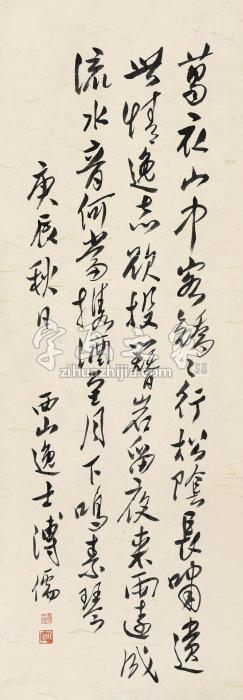 葛衣山中客行松陰長嘯遺
世情逸志欲投簪岩留夜來雨遠成
流水音何當攜酒至月下鳴素琴
庚辰秋日 西山逸士溥儒
字画之家
zihuazhijia.com